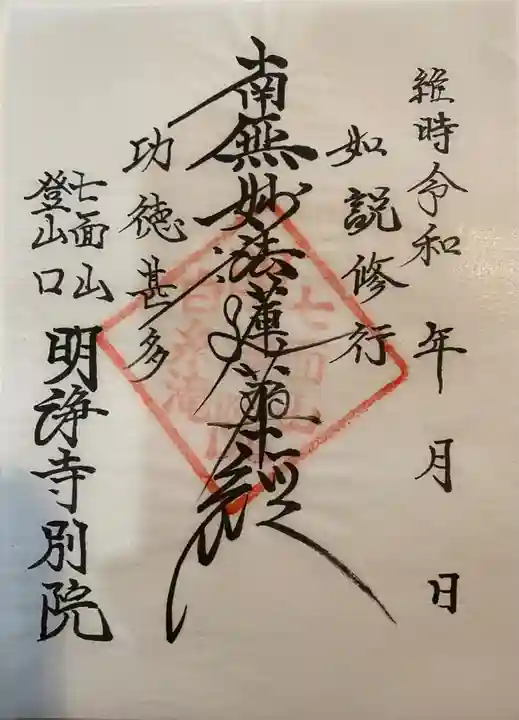 維時令和 年 月 日
如説修行
南無妙法蓮華経
功徳甚多
七面山
登山口
明浄寺別院